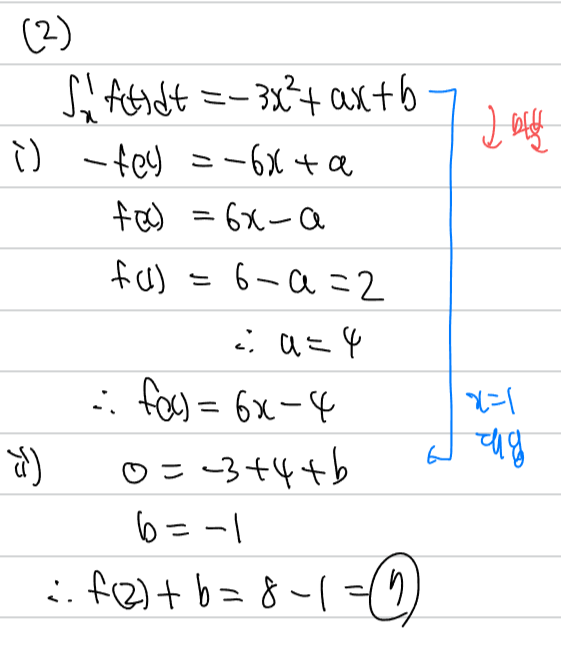 (2)
∫ₓ¹ f(t)dt = -3x²+ax+b
↓ 미분
i) -f(x) = -6x+a
f(x) = 6x-a
f(1) = 6-a=2
∴ a=4
∴ f(x) = 6x-4
x=1
대입
ii) 0 = -3+4+b
b = -1
∴ f(2)+b = 8-1 = 7